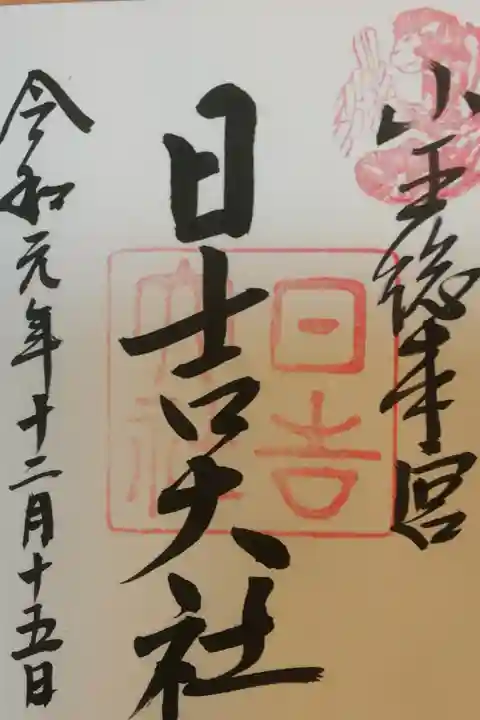 山王総本宮
日吉大社
日吉
大社
令和元年十二月十五日